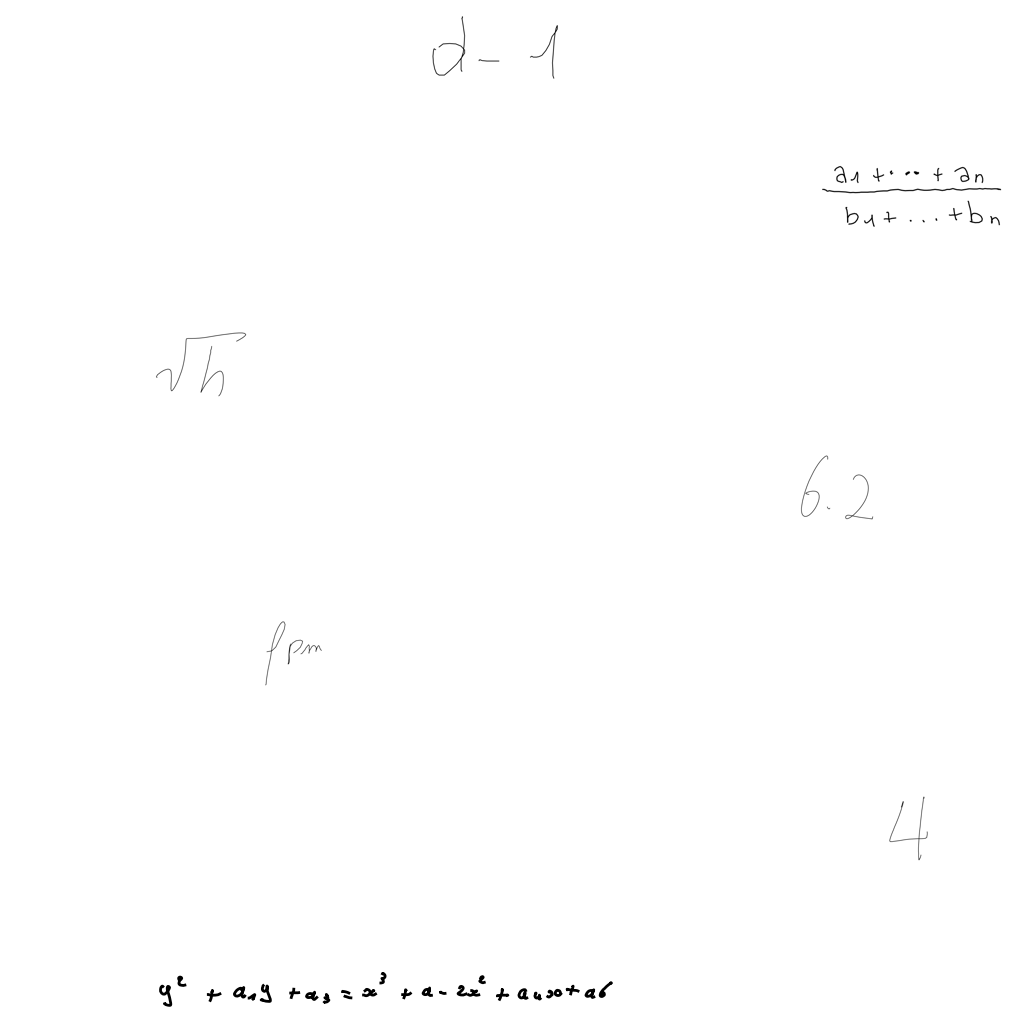 d - 1
a₁ + ... + aₙ
b₁ + ... + bₙ
√h
6.2
fpm
4
y² + a₁y + a₃ = x³ + a - 2x² + a₄x + a6